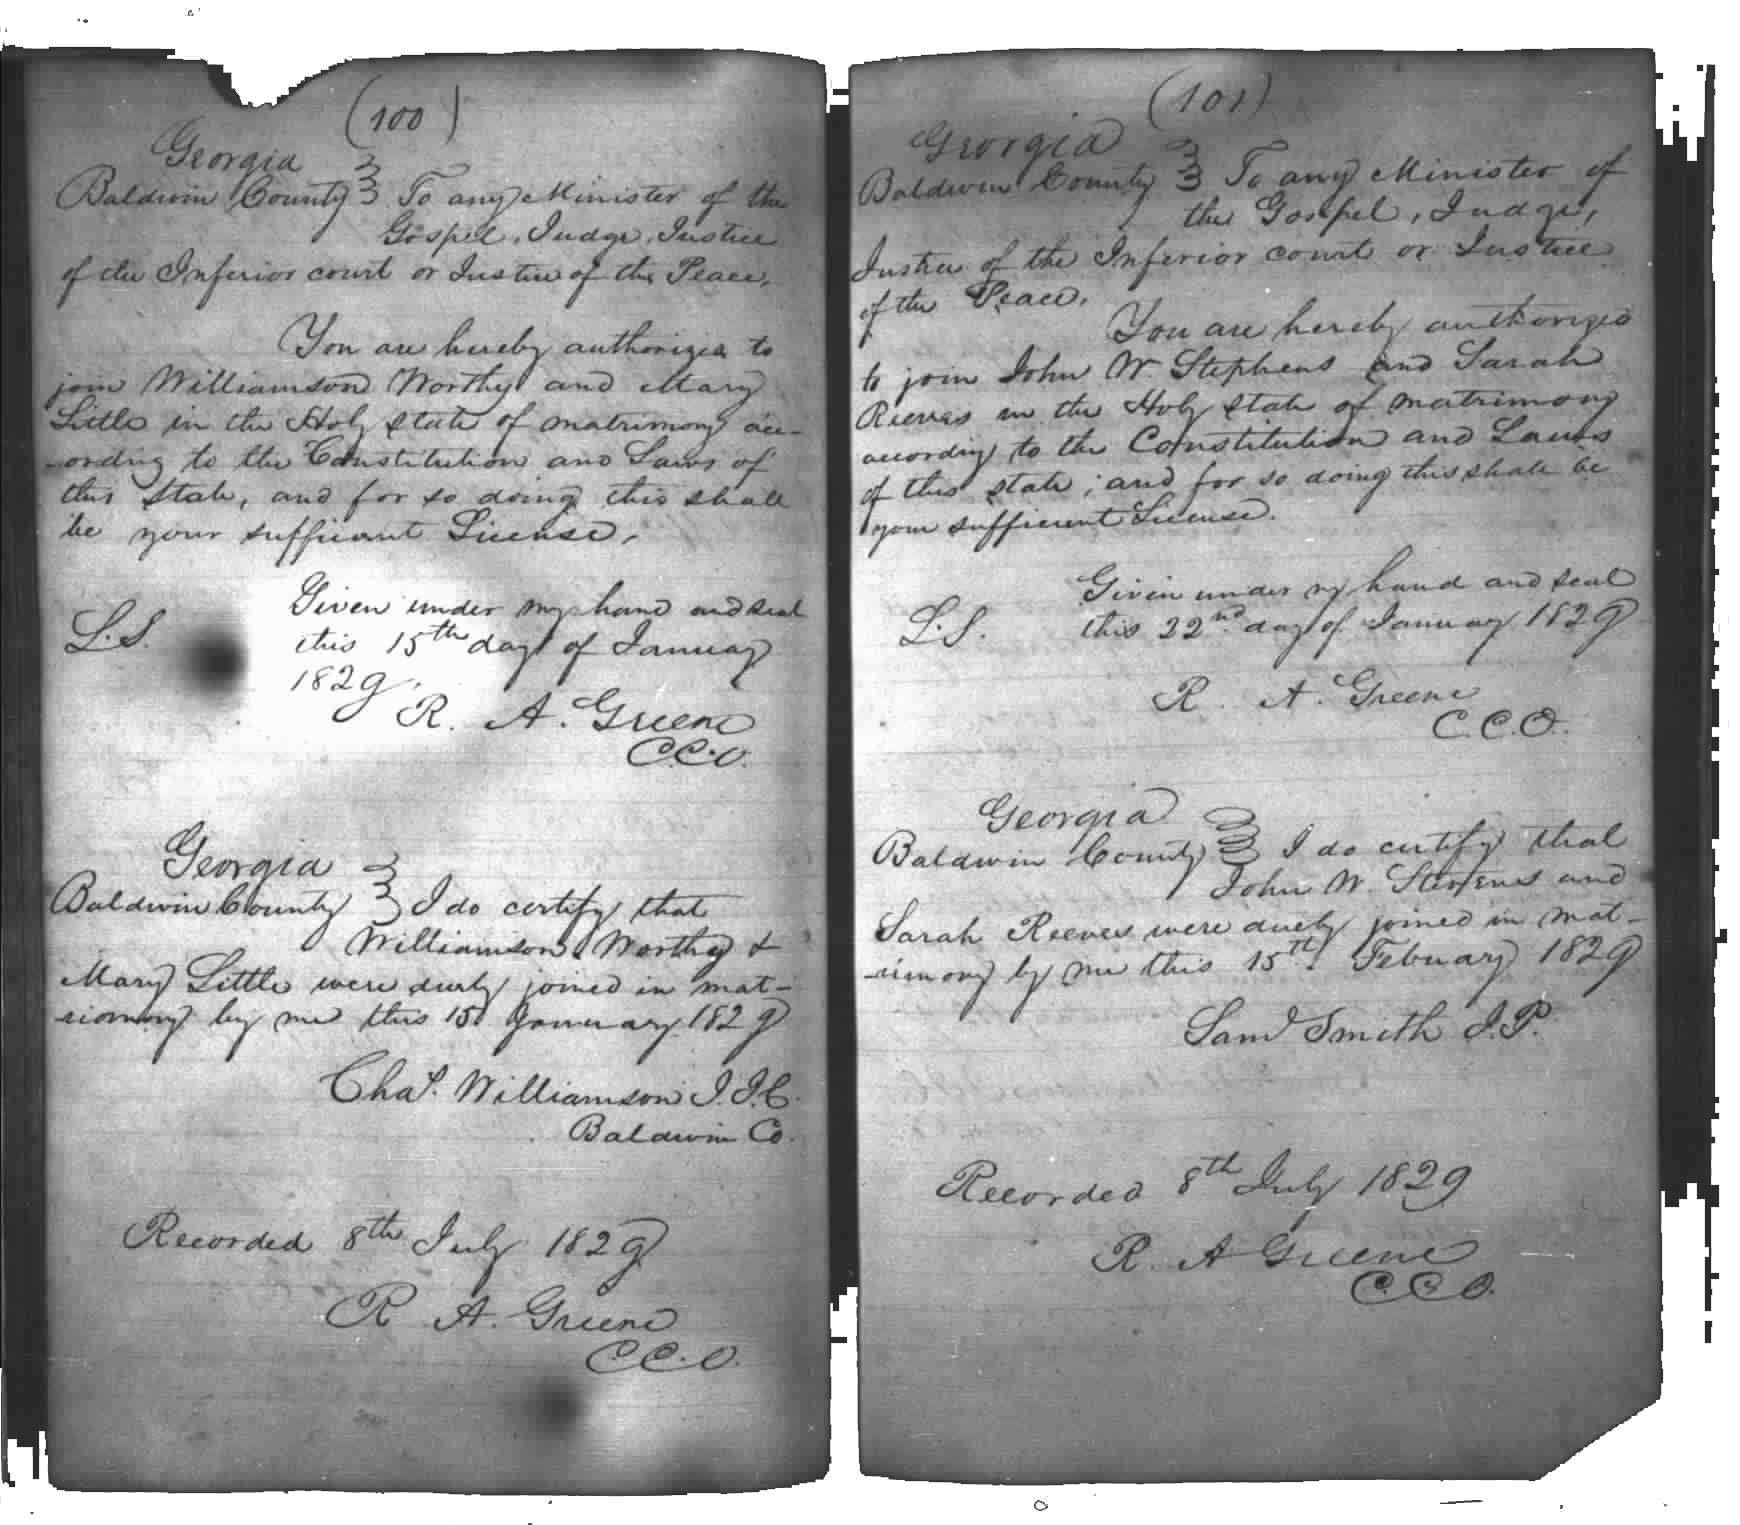 (100)
Georgia
Baldwin County } To any Minister of the
Gospel, Judge, Justice
of the Inferior court or Justice of the Peace,
You are hereby authorized to
join Williamson Worthy and Mary
Little in the Holy state of matrimony acc-
-ording to the Constitution and Laws of
this State, and for so doing this shall
be your sufficient License,
L.S. Given under my hand and seal
this 15th day of January
1829.
R. A. Greene
C.C.O.
Georgia
Baldwin County } I do certify that
Williamson Worthy &
Mary Little were duly joined in mat-
-rimony by me this 15 January 1829
Chas. Williamson J.I.C.
Baldwin Co.
Recorded 8th July 1829
R A. Greene
C.C.O.
(101)
Georgia
Baldwin County } To any Minister of
the Gospel, Judge,
Justice of the Inferior court or Justice
of the Peace.
You are hereby authorized
to join John W Stephens and Sarah
Reeves in the Holy state of matrimony
according to the Constitution and Laws
of this state; and for so doing this shall be
your sufficient License.
L.S. Given under my hand and seal
this 22nd day of January 1829
R. A. Greene
C.C.O.
Georgia
Baldwin County } I do certify that
John W. Stevens and
Sarah Reeves were duely joined in mat-
-rimony by me this 15th February 1829
Saml Smith J.P.
Recorded 8th July 1829
R. A Greene
C.C.O.